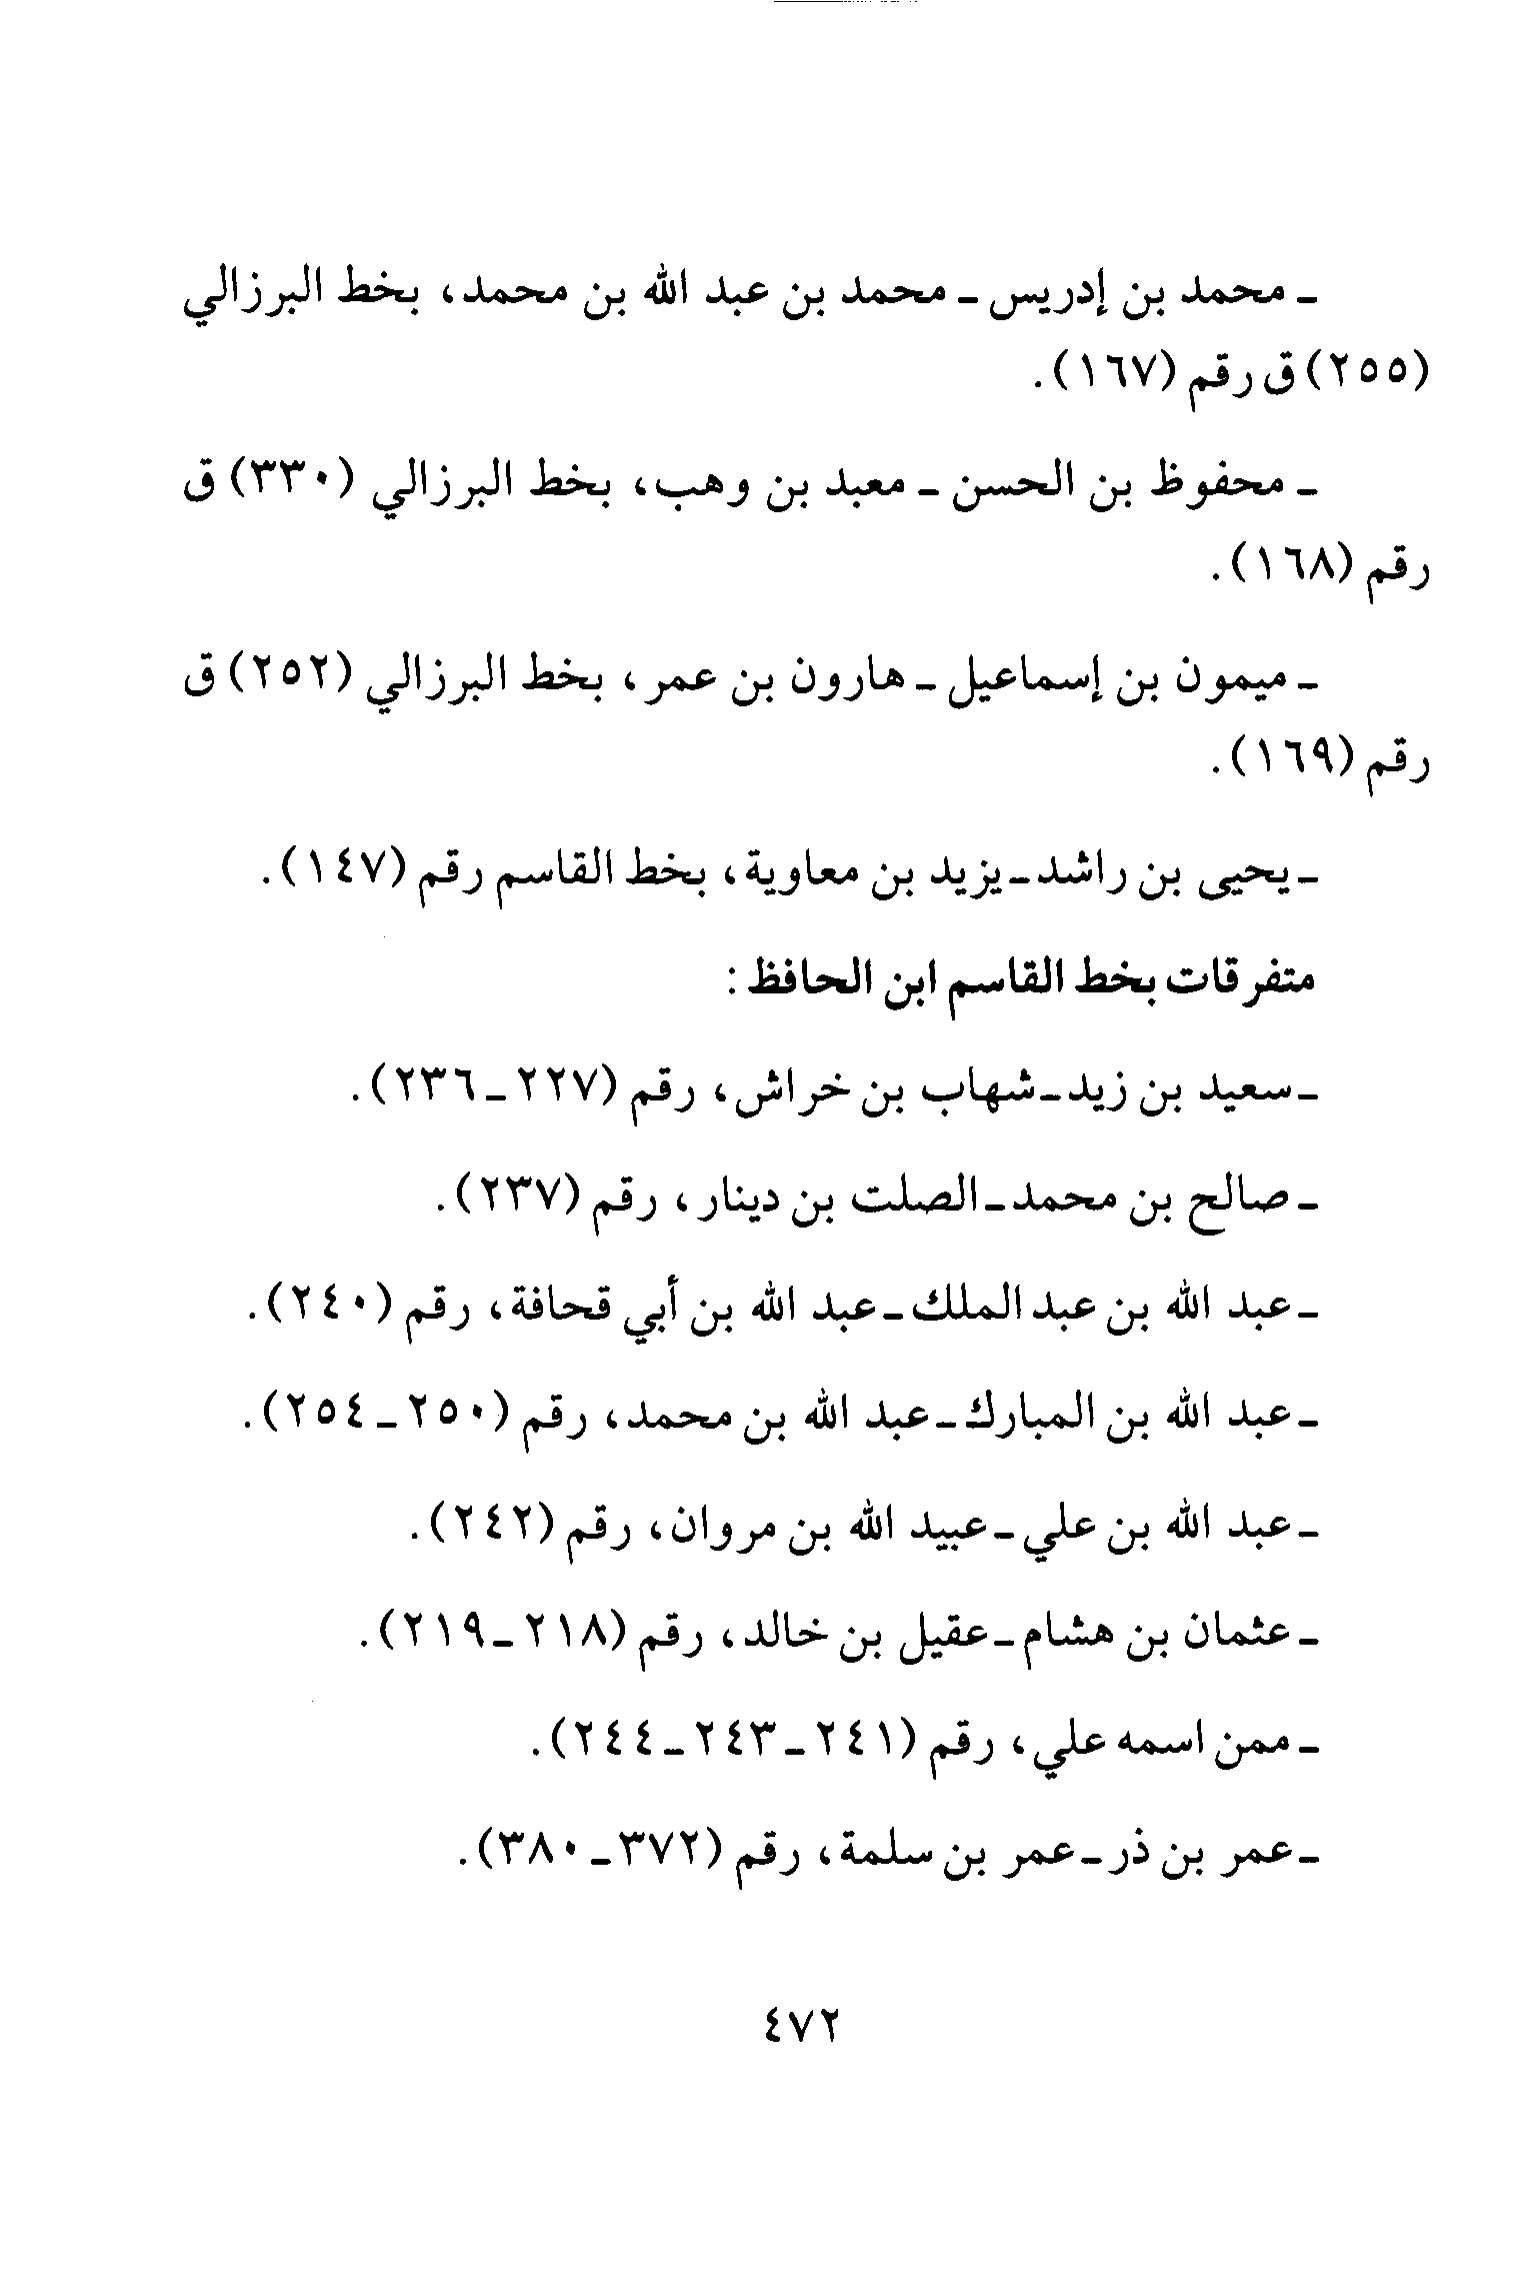 ـ محمد بن إدريس ـ محمد بن عبد الله بن محمد، بخط البرزالي
(٢٥٥) ق رقم (١٦٧).
ـ محفوظ بن الحسن ـ معبد بن وهب، بخط البرزالي (٣٣٠) ق
رقم (١٦٨).
ـ ميمون بن إسماعيل ـ هارون بن عمر، بخط البرزالي (٢٥٢) ق
رقم (١٦٩).
ـ يحيى بن راشد ـ يزيد بن معاوية، بخط القاسم رقم (١٤٧).
متفرقات بخط القاسم ابن الحافظ:
ـ سعيد بن زيد ـ شهاب بن خراش، رقم (٢٢٧ ـ ٢٣٦).
ـ صالح بن محمد ـ الصلت بن دينار، رقم (٢٣٧).
ـ عبد الله بن عبد الملك ـ عبد الله بن أبي قحافة، رقم (٢٤٠).
ـ عبد الله بن المبارك ـ عبد الله بن محمد، رقم (٢٥٠ ـ ٢٥٤).
ـ عبد الله بن علي ـ عبيد الله بن مروان، رقم (٢٤٢).
ـ عثمان بن هشام ـ عقيل بن خالد، رقم (٢١٨ ـ ٢١٩).
ـ ممن اسمه علي، رقم (٢٤١ ـ ٢٤٣ ـ ٢٤٤).
ـ عمر بن ذر ـ عمر بن سلمة، رقم (٣٧٢ ـ ٣٨٠).
٤٧٢